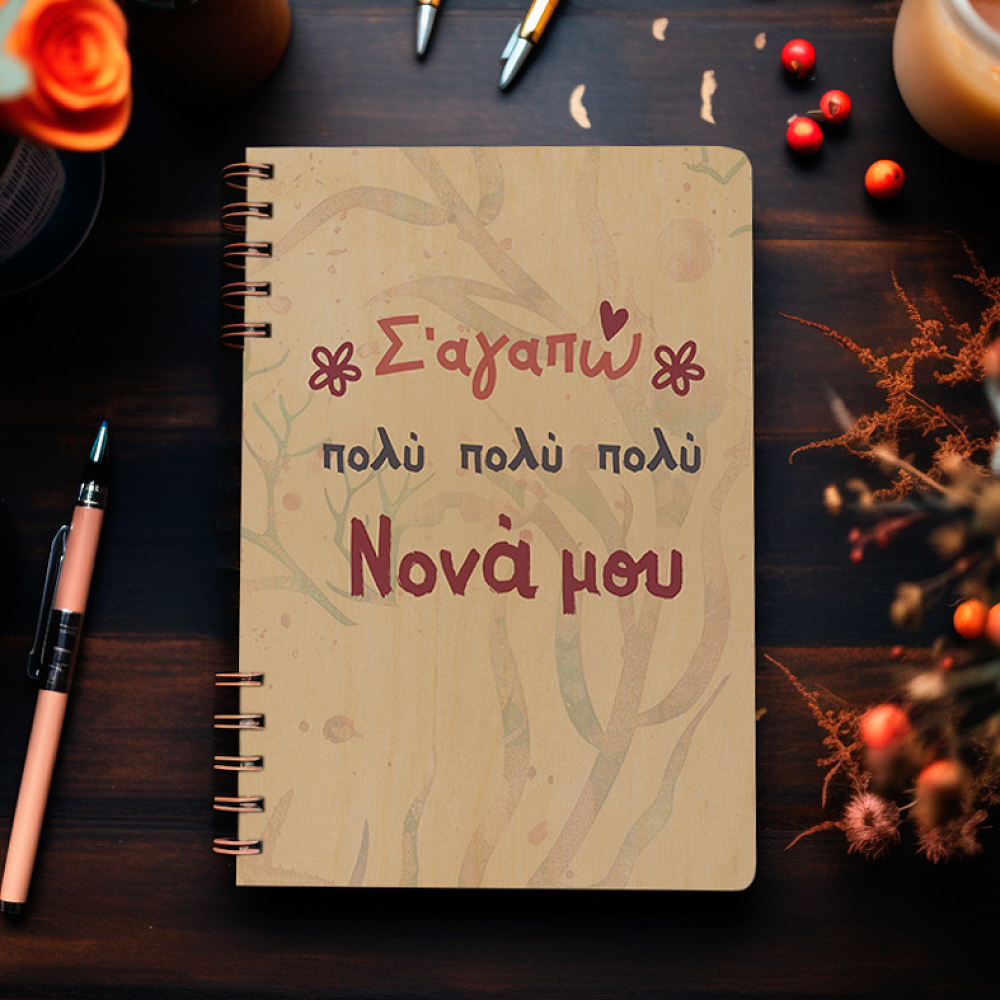 Σ'άγαπώ
πολύ πολύ πολύ
Νονά μου